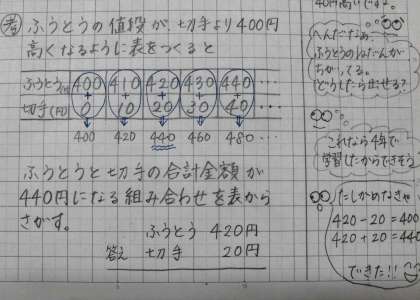 考 ふうとうの値段が、切手より400円
高くなるように表をつくると
ふうとう(円) 400 410 420 430 440 …
+ + + + +
切手(円) 0 10 20 30 40 …
400 420 440 460 480 …
ふうとうと切手の合計金額が
440円になる組み合わせを表から
さがす。
ふうとう 420円
答え 切手 20円
40円高いです。
へんだなぁ…
ふうとうのねだんが
ちがってる。
どうしたら出せる?
これなら4年で
学習したからできそう
たしかめなきゃ
420-20=400
420+20=440
できた!!